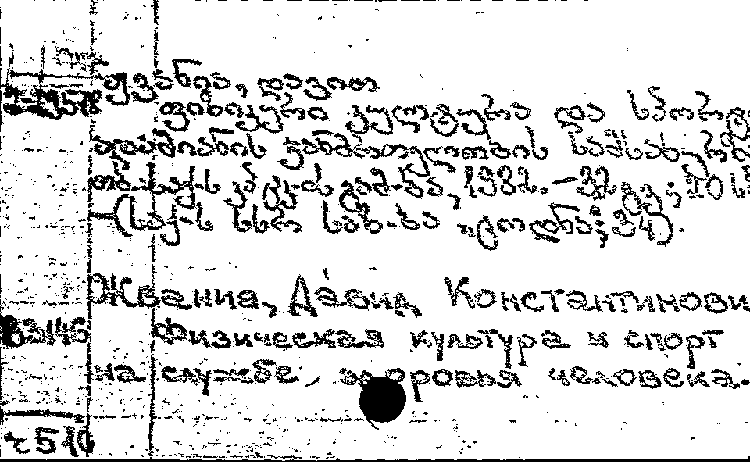 ჟვანია, დავით
ფიზიკური კულტურა და სპორტ
ადამიანის ჯანმრთელობის სამსახურშ
თბ. საქ-ს კპ ცკ-ის გამ-ბა, 1982. – 32 გვ; 20 სმ
– (საქ-ს სსრ საზ-ბა "ცოდნა"; 34).
Жвания, Давид Константинови
Физическая культура и спорт
на службе здоровья человека.